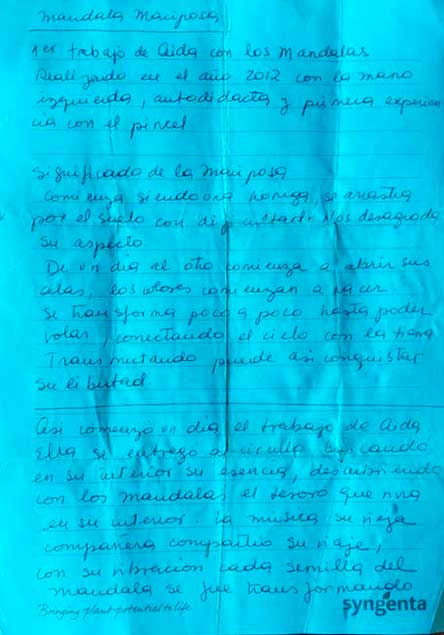 Mandala Mariposa
1er trabajo de Aida con los Mandalas
Realizado en el año 2012 con la mano
izquierda, autodidacta y primera experien
cia con el pincel
Significado de la Mariposa
Comienza siendo una horuga, se arrastra
por el suelo con dificultad. Nos desagrada
su aspecto
De un dia al otro comienza a abrir sus
alas, los colores comienzan a nacer
Se transforma poco a poco hasta poder
volar, conectando el cielo con la tierra
Transmutando puede asi conquistar
su libertad.
Asi comenzo un dia el trabajo de Aida
Ella se entrego al circulo buscando
en su interior su esencia, descubriendo
con los mandalas el tesoro que vivia
en su interior. la musica su vieja
compañera compartio su viaje,
con su vibracion cada semilla del
mandala se fue transformando
Bringing plant potential to life
syngenta